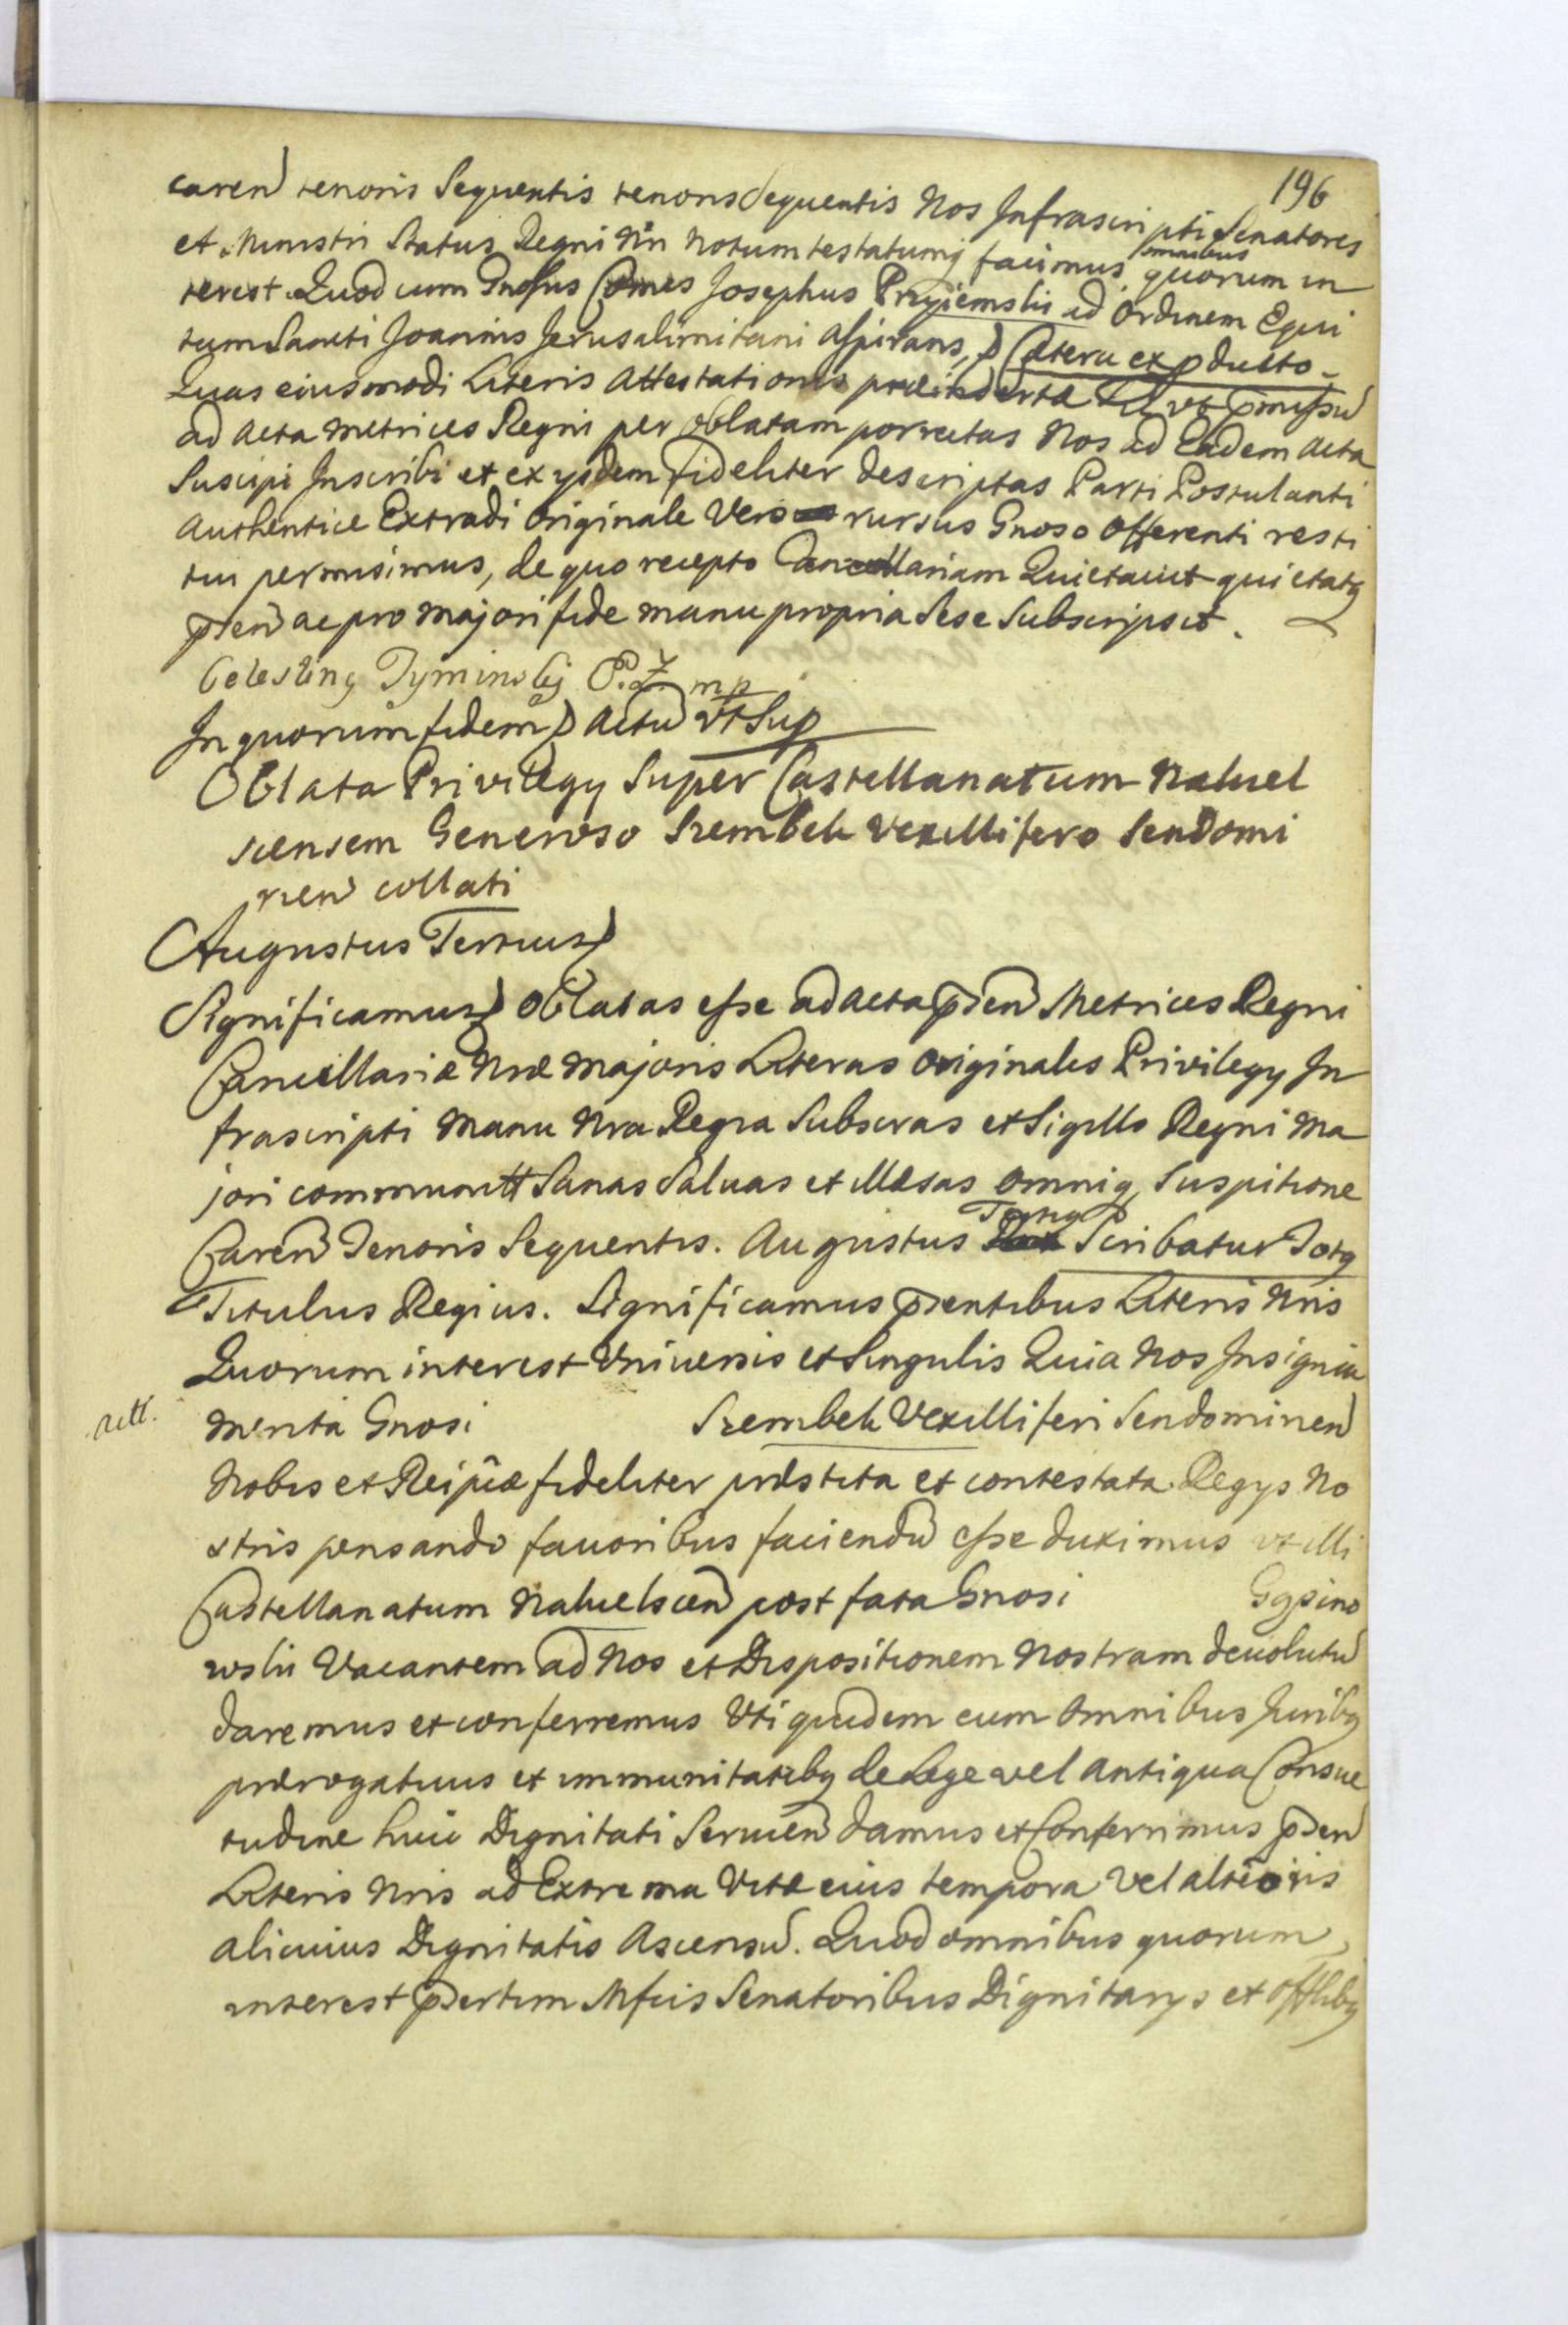 196
caren tenoris Sequentis tenoris Sequentis Nos Infrascripti Senatores
et Ministri Status Regni Nri Notum testatumq facimus omnibus quorum in
terest. Quod cum Gnosus Comes Josephus Przyiemski ad Ordinem Equi
tum Sancti Joannis Jerusalimitani Aspirans, Cetera ex pducto
Quas eiusmodi Literis Attestationis ut pmissu
ad Acta Metrices Regni per Oblatam porrectas Nos ad Eadem Acta
Suscipi Inscribi et ex ysdem fideliter descriptas Parti Postulanti
Authentice Extradi Originale Vero rursus Gnoso Offerenti resti
tui permisimus, de quo recepto Cancellariam Quietavit quietatq
psen ac pro majori fide manu propria Sese Subscripsit.
Celesting Tyminskij P.Z. mp
In quorum fidem Actu vt Sup
Oblata Privilegy Super Castellanatum Nakiel
scensem Generoso Szembek Vexillifero Sendomi
rien collati
Augustus Tertius
Significamus Oblatas esse ad Acta psen Metrices Regni
Cancellariæ Nræ Majoris Literas Originales Privilegy In
frascripti Manu Nra Regia Subscras et Sigillo Regni Ma
jori communitt Sanas Saluas et Illæsas omniq Suspitione
Caren Tenoris Sequentis. Augustus Tertig Scribatur Totg
Titulus Regius. Significamus psentibus Literis Nris
Quorum interest Vniuersis et Singulis Quia Nos Insignia
merita Gnosi Szembek Vexilliferi Sendominen
Nobis et Reipcæ fideliter præstita et contestata Regys No
stris pensando fauoribus faciendu esse duximus vt illi
Castellanatum Nakielscen post fata Gnosi
wski Vacantem ad Nos et Dispositionem Nostram deuolutu
daremus et conferremus Vti quidem cum Omnibus Juribq
prærogatiuis et immunitatibq de Lege vel Antiqua Consue
tudine huic Dignitati Seruien damus et Conferrimus psen
Literis Nris ad Extrema Vitæ eius tempora Vel altioris
alicuius Dignitatis Ascensu. Quod omnibus quorum
interest psertim Mfcis Senatoribus Dignitarys et Offlibq